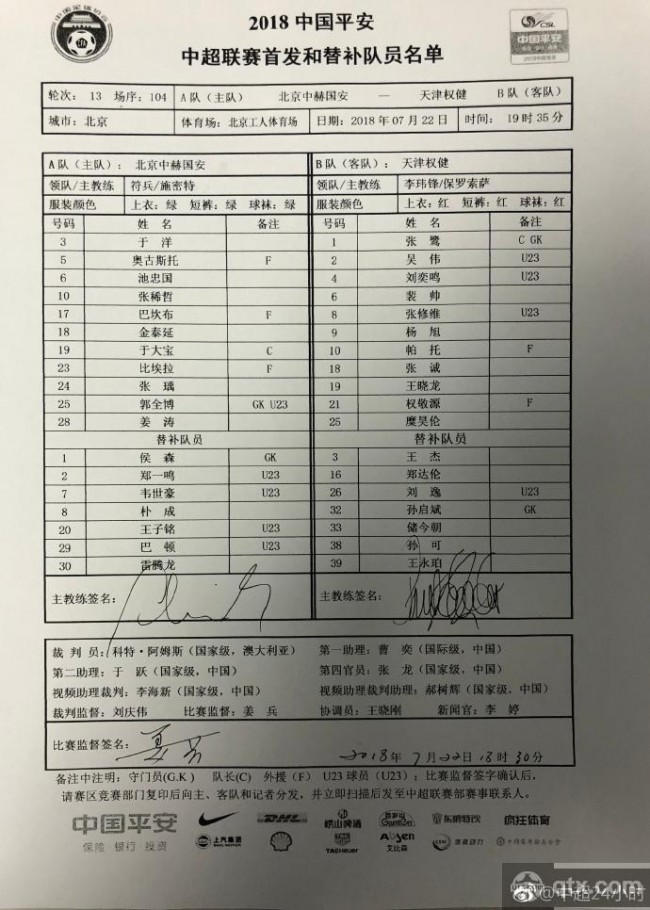 2018 中国平安
中超联赛首发和替补队员名单
CSL
中国平安
轮次: 13 场序: 104 A队（主队） 北京中赫国安 — 天津权健 B队（客队）
城市: 北京 体育场: 北京工人体育场 日期: 2018年07月22日 时间: 19时35分
A队（主队）: 北京中赫国安 B队（客队）: 天津权健
领队/主教练 符兵/施密特 领队/主教练 李玮锋/保罗索萨
服装颜色 上衣: 绿 短裤: 绿 球袜: 绿 服装颜色 上衣: 红 短裤: 红 球袜: 红
号码 姓 名 备注 号码 姓 名 备注
3 于 洋 1 张 鹭 C GK
5 奥古斯托 F 2 吴 伟 U23
6 池忠国 4 刘奕鸣 U23
10 张稀哲 6 裴 帅
17 巴坎布 F 8 张修维 U23
18 金泰延 9 杨 旭
19 于大宝 C 10 帕 托 F
23 比埃拉 F 18 张 诚
24 张 瑀 19 王晓龙
25 郭全博 GK U23 21 权敬源 F
28 姜 涛 25 糜昊伦
替补队员 替补队员
1 侯 森 GK 3 王 杰
2 郑一鸣 U23 16 郑达伦
7 韦世豪 U23 26 刘 逸 U23
8 朴 成 32 孙启斌 GK
20 王子铭 U23 33 储今朝
29 巴 顿 U23 38 孙 可
30 雷腾龙 39 王永珀
主教练签名: 主教练签名:
裁 判 员: 科特·阿姆斯（国家级，澳大利亚） 第一助理: 曹 奕（国际级，中国）
第二助理: 于 跃（国家级，中国） 第四官员: 张 龙（国家级，中国）
视频助理裁判: 李海新（国家级，中国） 视频助理裁判助理: 郝树辉（国家级，中国）
裁判监督: 刘庆伟 比赛监督: 姜 兵 协调员: 王晓刚 新闻官: 李 婷
比赛监督签名: 2018年 7月22日18时30分
备注中注明: 守门员(G.K) 队长(C) 外援（F） U23球员（U23）; 比赛监督签字确认后，
请赛区竞赛部门复印后向主、客队和记者分发，并立即扫描后发至中超联赛部赛事联系人。
中国平安
保险 银行 投资
上汽集团
DHL
崂山啤酒
TAGHeuer
东鹏特饮
疯狂体育
艾比森
@中超24小时
qtx.com